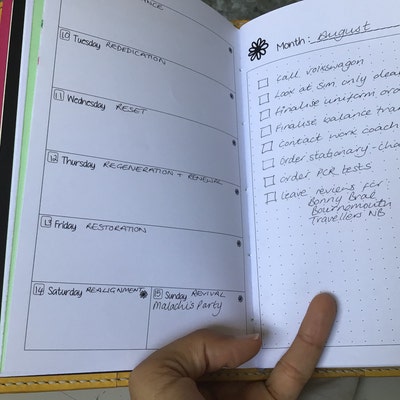 10 Tuesday REDEDICATION
11 Wednesday RESET
12 Thursday REGENERATION + RENEWAL
13 Friday RESTORATION
14 Saturday REALIGNMENT
15 Sunday REVIVAL
Malachi's Party
Month: August
call volkswagon
Look at sim only
Finalise uniform
Finalise balance
Contact work coach
Order stationary
order PCR tests
leave reviews for
Bonny Brae
Bournemouth
Travellers NB